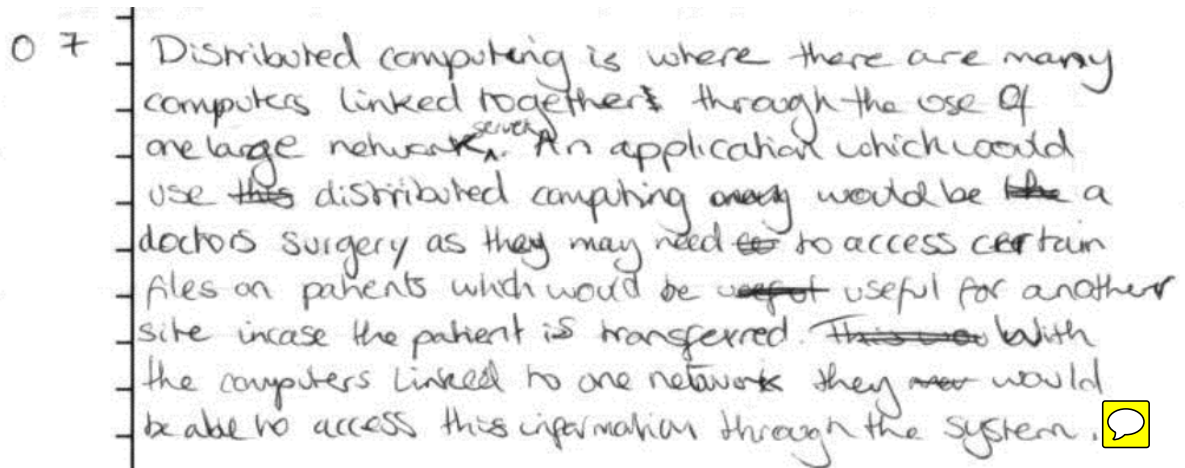 07 Distributed computing is where there are many
computers linked together through the use of
one large network server. An application which would
use this distributed computing would be the a
doctors surgery as they may need to to access certain
files on patients which would be useful useful for another
site incase the patient is transferred. This With
the computers linked to one network they would
be able to access this information through the system.